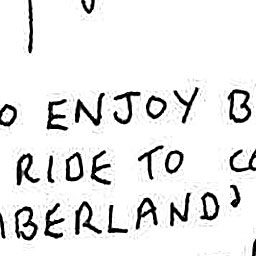 O ENJOY B
RIDE TO CO
MBERLAND'